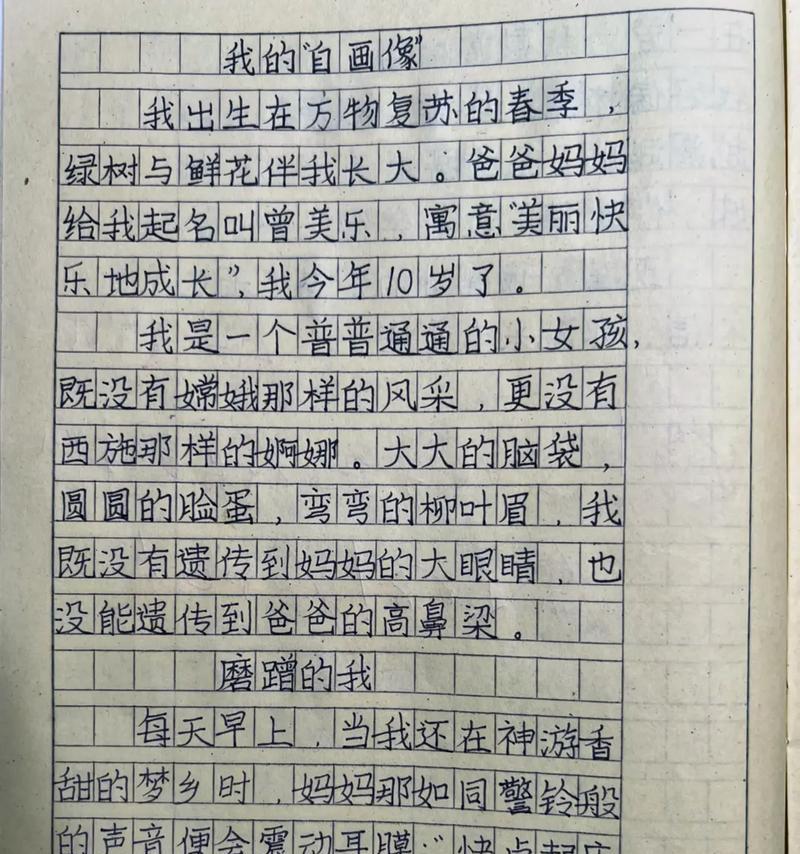 我的“自画像”
我出生在方物复苏的春季，
绿树与鲜花伴我长大。爸爸妈妈
给我起名叫曾美乐，寓意“美丽快
乐地成长”，我今年10岁了。
我是一个普普通通的小女孩，
既没有嫦娥那样的风采，更没有
西施那样的婀娜。大大的脑袋，
圆圆的脸蛋，弯弯的柳叶眉，我
既没有遗传到妈妈的大眼睛，也
没能遗传到爸爸的高鼻梁。
磨蹭的我
每天早上，当我还在神游香
甜的梦乡时，妈妈那如同警铃般
的声音便会震动耳膜：“快点起床